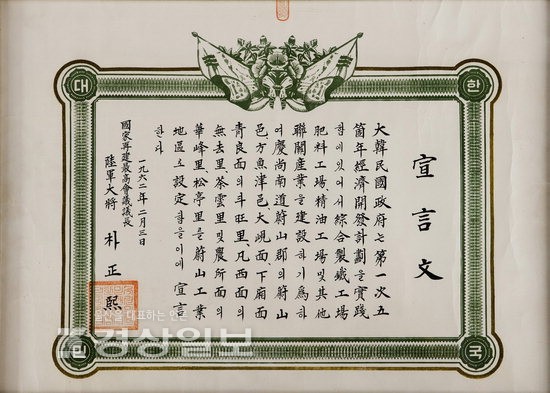 대
한
민
국
宣言文
大韓民國政府는第一次五
箇年經濟開發計劃을實踐
함에있어서綜合製鐵工場
肥料工場、精油工場및其他
聯關産業을建設하기爲하
여慶尙南道蔚山郡의蔚山
邑、方魚津邑、大峴面、下廂面
靑良面의斗旺里、凡西面의
無去里、茶雲里및農所面의
華峰里、松亭里를蔚山工業
地區로設定함을이에宣言
한다
一九六二年二月三日
國家再建最高會議議長
陸軍大將 朴正熙
울산을 대표하는 언론
경상일보